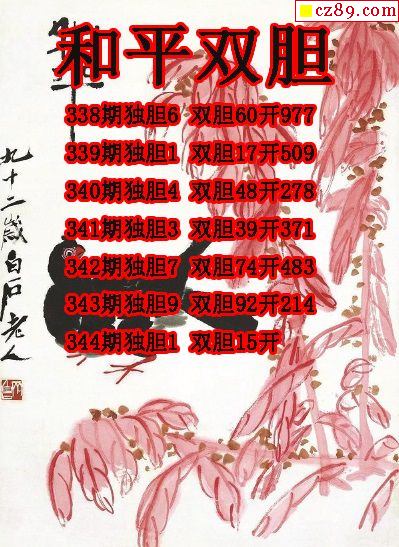 cz89.com
和平双胆
338期独胆6 双胆60开977
339期独胆1 双胆17开509
340期独胆4 双胆48开278
341期独胆3 双胆39开371
342期独胆7 双胆74开483
343期独胆9 双胆92开214
344期独胆1 双胆15开
九十二岁白石老人